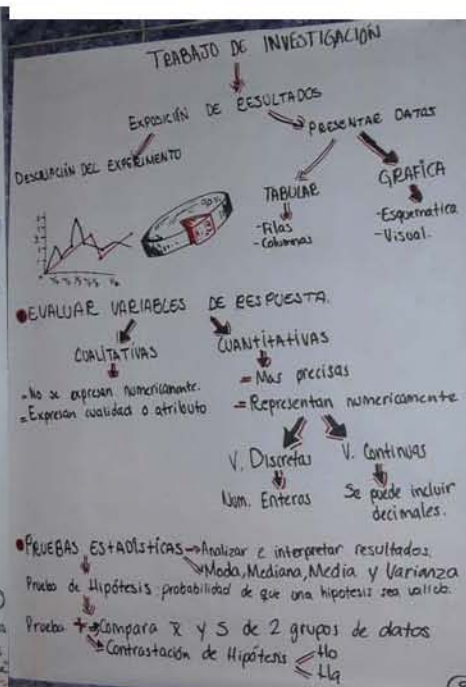 TRABAJO DE INVESTIGACIÓN
EXPOSICIÓN DE RESULTADOS
DESCRIPCIÓN DEL EXPERIMENTO
PRESENTAR DATOS
TABULAR
-Filas
-Columnas
GRAFICA
-Esquematica
-Visual.
EVALUAR VARIABLES DE RESPUESTA.
CUALITATIVAS
-No se expresan numericamente.
=Expresan cualidad o atributo
CUANTITATIVAS
=Mas precisas
=Representan numericamente
V. Discretas
Num. Enteros
V. Continuas
Se puede incluir
decimales.
PRUEBAS ESTADISTICAS→Analizar e interpretar resultados.
Moda, Mediana, Media y Varianza
Prueba de Hipótesis: probabilidad de que una hipotesis sea valida.
Prueba t→Compara x̄ y S de 2 grupos de datos
Contrastación de Hipótesis
Ho
Ha